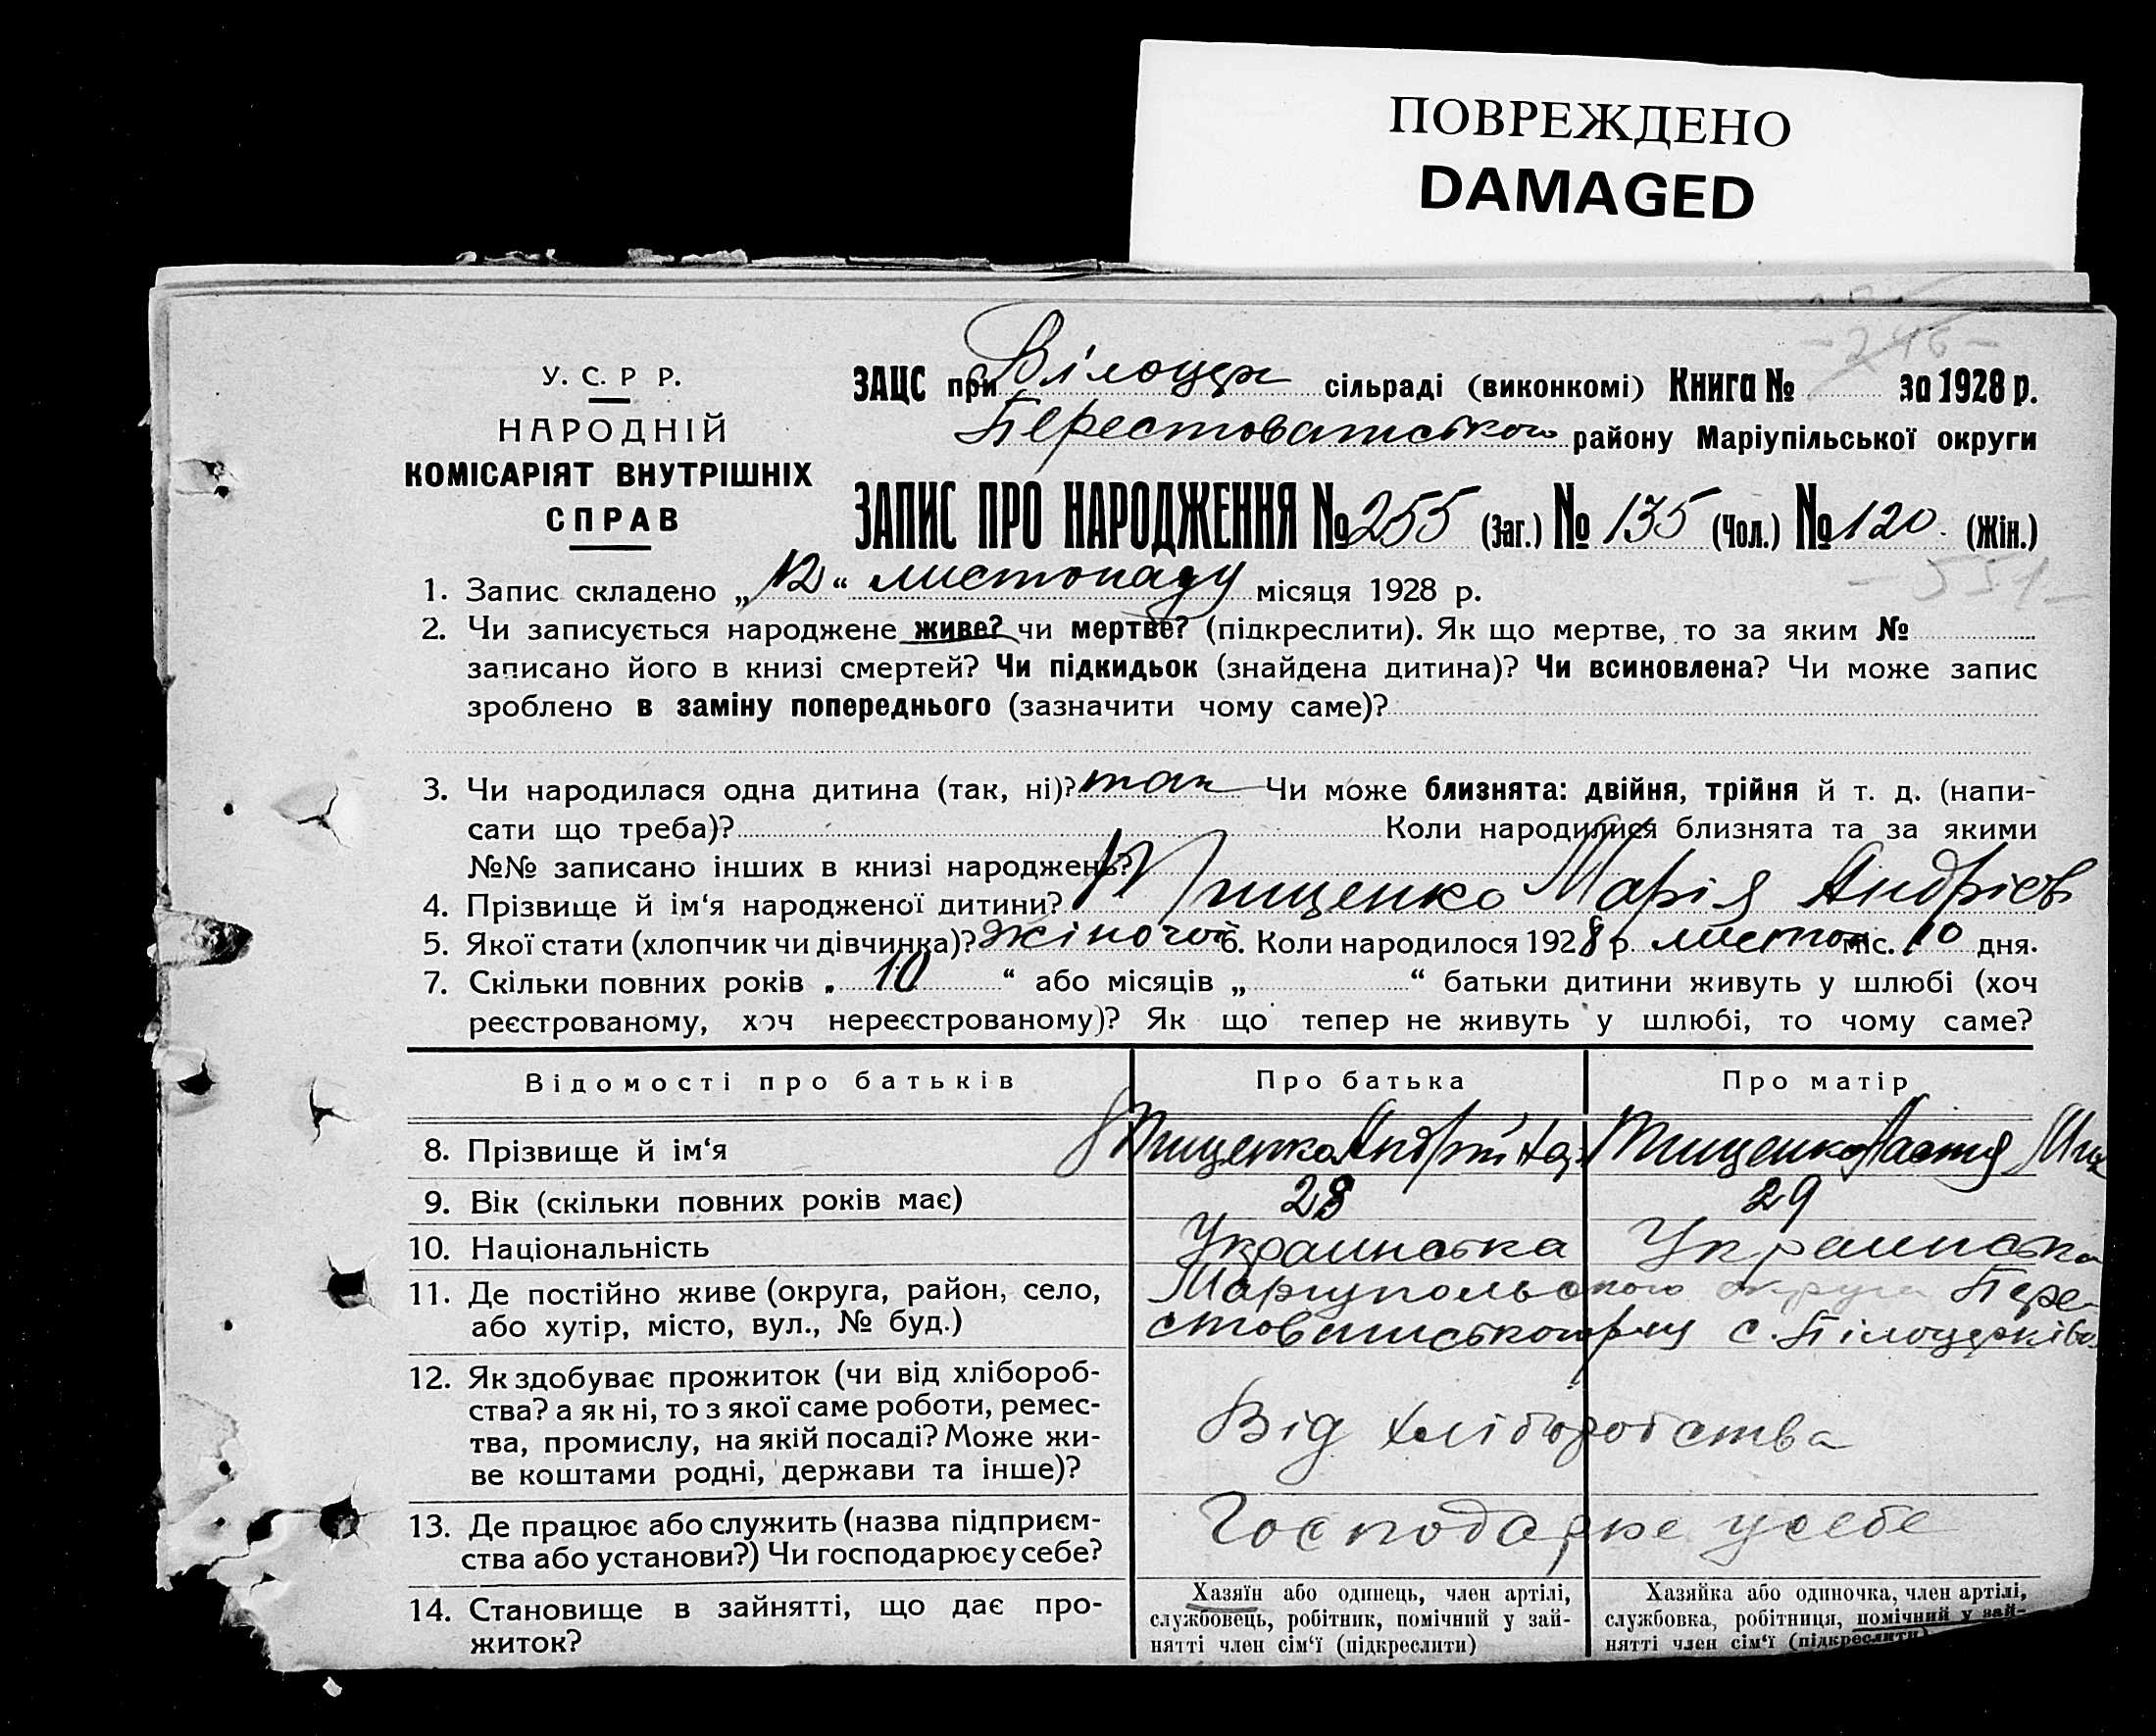 ПОВРЕЖДЕНО
DAMAGED
-246-
У. С. Р Р.
НАРОДНІЙ
КОМІСАРІЯТ ВНУТРІШНІХ
СПРАВ
ЗАЦС при Білоцерк сільраді (виконкомі) Книга № за 1928 р.
Берестоватського району Маріупільської округи
ЗАПИС ПРО НАРОДЖЕННЯ № 255 (Заг.) № 135 (Чол.) № 120. (Жін.)
- 551 -
1. Запис складено „12“ листопаду місяця 1928 р.
2. Чи записується народжене живе? чи мертве? (підкреслити). Як що мертве, то за яким №
записано його в книзі смертей? Чи підкидьок (знайдена дитина)? Чи всиновлена? Чи може запис
зроблено в заміну попереднього (зазначити чому саме)?
3. Чи народилася одна дитина (так, ні)? так Чи може близнята: двійня, трійня й т. д. (напи-
сати що треба)? Коли народилися близнята та за якими
№№ записано інших в книзі народжень?
4. Прізвище й ім‘я народженої дитини? Тищенко Марія Андрієв
5. Якої стати (хлопчик чи дівчинка)? Жіночої 6. Коли народилося 1928 р. листоп міс. 10 дня.
7. Скільки повних років „ 10 “ або місяців „ “ батьки дитини живуть у шлюбі (хоч
реєстрованому, хоч нереєстрованому)? Як що тепер не живуть у шлюбі, то чому саме?
Відомості про батьків Про батька Про матір
8. Прізвище й ім‘я Тищенко Андрій Тищенко
9. Вік (скільки повних років має) 28 29
10. Національність Украинська Украинська
11. Де постійно живе (округа, район, село, Мариупольского округи Бере-
або хутір, місто, вул., № буд.) стоватського р-ну с. Білоцерківка
12. Як здобуває прожиток (чи від хлібороб-
ства? а як ні, то з якої саме роботи, ремес-
тва, промислу, на якій посаді? Може жи-
ве коштами родні, держави та інше)?
Від хліборобства
13. Де працює або служить (назва підприєм-
ства або установи?) Чи господарює у себе?
Господарює у себе
14. Становище в зайнятті, що дає про-
житок?
Хазяїн або одинець, член артілі,
службовець, робітник, помічний у зай-
нятті член сім‘ї (підкреслити)
Хазяйка або одиночка, член артілі,
службовка, робітниця, помічний у зай-
нятті член сім‘ї (підкреслити)